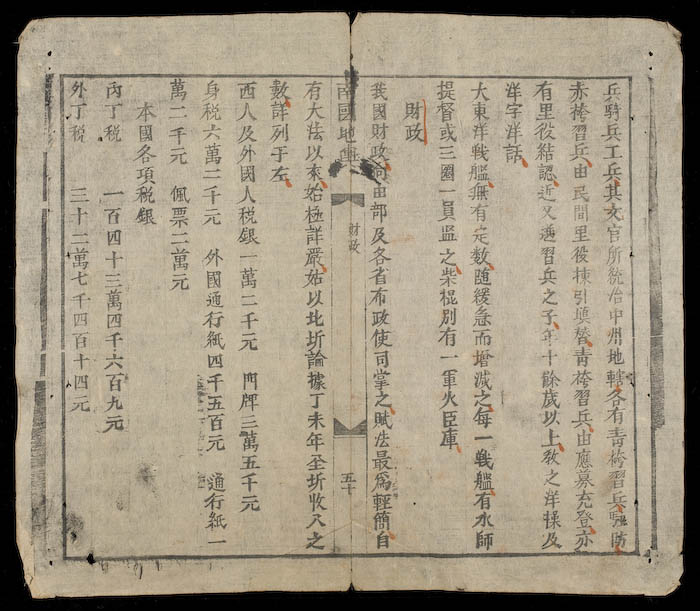 兵騎兵工兵其文官所統治中州地轄各有青袴習兵駐防
赤袴習兵由民間里役揀引塡替青袴習兵由應募充登亦
有里役結認近又選習兵之子年十餘歲以上教之洋操及
洋字洋話
大東洋戰艦無有定數随緩急而增減之每一戰艦有水師
提督或三圈一員監之柴棍別有一軍火臣庫
財政
我國財政向由部及各省布政使司掌之賦法最爲輕簡自
南國地輿
財政
五十
有大法以來始極詳嚴姑以北圻論據丁未年全圻收入之
數詳列于左
西人及外國人税銀一萬二千元 門牌三萬五千元
身税六萬二千元 外國通行紙四千五百元 通行紙一
萬二千元 佩票二萬元
本國各項税銀
內丁税 一百四十三萬四千六百九元
外丁税 三十二萬七千四百十四元